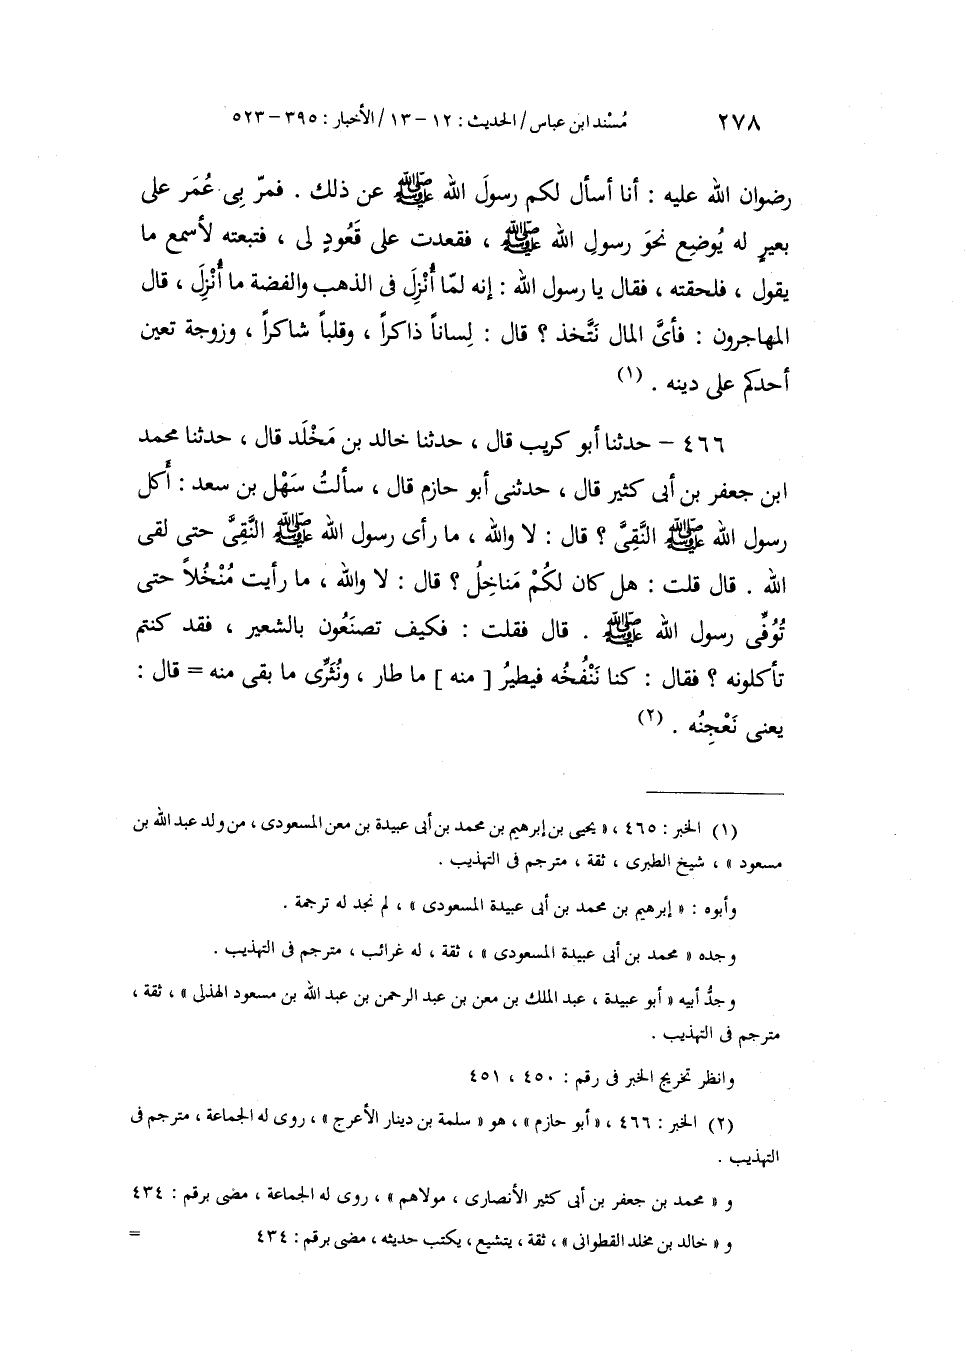 ٢٧٨ مُسْند ابن عباس / الحديث : ١٢ - ١٣ / الأخبار : ٣٩٥ - ٥٢٣
رضوان الله عليه : أنا أسأل لكم رسولَ الله ﷺ عن ذلك . فمرّ بى عُمَر على
بعيرٍ له يُوضِع نحوَ رسولِ الله ﷺ ، فقعدت على قَعُودٍ لى ، فتبعته لأسمع ما
يقول ، فلحقته ، فقال يا رسول الله : إنه لمّا أُنْزِلَ فى الذهب والفضة ما أُنْزِلَ ، قال
المهاجرون : فأىَّ المال نَتَّخذ ؟ قال : لِساناً ذاكراً ، وقلباً شاكراً ، وزوجة تعين
أحدكم على دينه . (١)
٤٦٦ - حدثنا أبو كريب قال ، حدثنا خالد بن مَخْلَد قال ، حدثنا محمد
ابن جعفر بن أبى كثير قال ، حدثنى أبو حازم قال ، سألتُ سَهْل بن سعد : أَكل
رسول الله ﷺ النَّقِىَّ ؟ قال : لا والله ، ما رأى رسول الله ﷺ النَّقِىَّ حتى لقى
الله . قال قلت : هل كان لكُمْ مَناخِلُ ؟ قال : لا والله ، ما رأيت مُنْخُلاً حتى
تُوُفِّى رسول الله ﷺ . قال فقلت : فكيف تصنَعُون بالشعير ، فقد كنتم
تأكلونه ؟ فقال : كنا نَنْفُخُه فيطيرُ [ منه ] ما طار ، ونُثَرِّى ما بقى منه = قال :
يعنى نَعْجِنُه . (٢)
(١) الخبر : ٤٦٥ ، « يحيى بن إبرهيم بن محمد بن أبى عبيدة بن معن المسعودى ، من ولد عبد الله بن
مسعود » ، شيخ الطبرى ، ثقة ، مترجم فى التهذيب .
وأبوه : « إبرهيم بن محمد بن أبى عبيدة المسعودى » ، لم نجد له ترجمة .
وجده « محمد بن أبى عبيدة المسعودى » ، ثقة ، له غرائب ، مترجم فى التهذيب .
وجدُّ أبيه « أبو عبيدة ، عبد الملك بن معن بن عبد الرحمن بن عبد الله بن مسعود الهذلى » ، ثقة ،
مترجم فى التهذيب .
وانظر تخريج الخبر فى رقم : ٤٥٠ ، ٤٥١
(٢) الخبر : ٤٦٦ ، « أبو حازم » ، هو « سلمة بن دينار الأعرج » ، روى له الجماعة ، مترجم فى
التهذيب .
و « محمد بن جعفر بن أبى كثير الأنصارى ، مولاهم » ، روى له الجماعة ، مضى برقم : ٤٣٤
و « خالد بن مخلد القطوانى » ، ثقة ، يتشيع ، يكتب حديثه ، مضى برقم : ٤٣٤ =